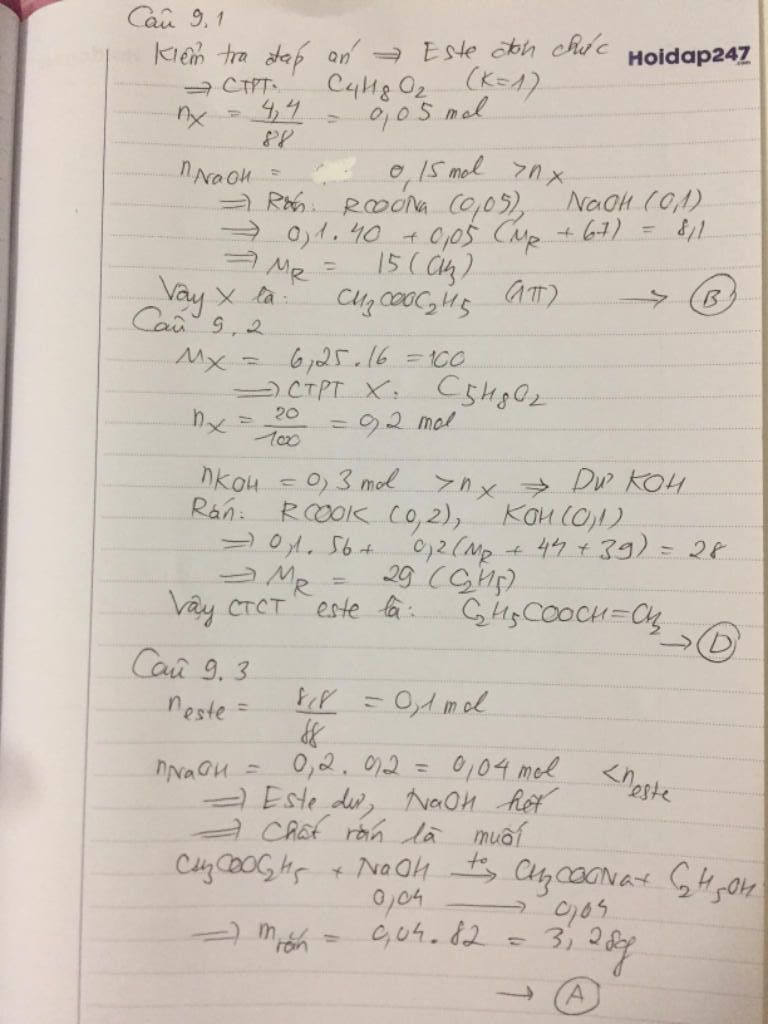 Câu 9.1
Kiểm tra đáp án => Este đơn chức
Hoidap247.com
=> CTPT: C4H8O2 (K=1)
nX = 4,4/88 = 0,05 mol
nNaOH = 0,15 mol > nX
=> Rắn: RCOONa (0,05), NaOH (0,1)
=> 0,1.40 + 0,05 (MR + 67) = 8,1
=> MR = 15 (CH3)
Vậy X là: CH3COOC2H5 (1π) → (B)
Câu 9.2
MX = 6,25.16 = 100
=> CTPT X: C5H8O2
nX = 20/100 = 0,2 mol
nKOH = 0,3 mol > nX => Dư KOH
Rắn: RCOOK (0,2), KOH (0,1)
=> 0,1.56 + 0,2(MR + 44 + 39) = 28
=> MR = 29 (C2H5)
Vậy CTCT este là: C2H5COOCH=CH2
→ (D)
Câu 9.3
neste = 8,8/88 = 0,1 mol
nNaOH = 0,2.0,2 = 0,04 mol < neste
=> Este dư, NaOH hết
=> Chất rắn là muối
CH3COOC2H5 + NaOH →(to) CH3COONa + C2H5OH
0,04 → 0,04
=> mrắn = 0,04.82 = 3,28g
→ (A)